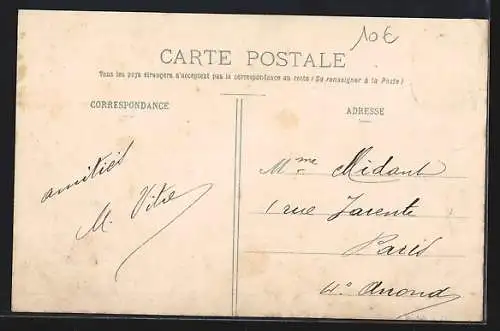 10€
CARTE POSTALE
Tous les pays étrangers n'acceptent pas la correspondance au recto (Se renseigner à la Poste)
CORRESPONDANCE
ADRESSE
amitiés
M. Vitre
Mme Midant
1 rue Jarente
Paris
4e Arrond